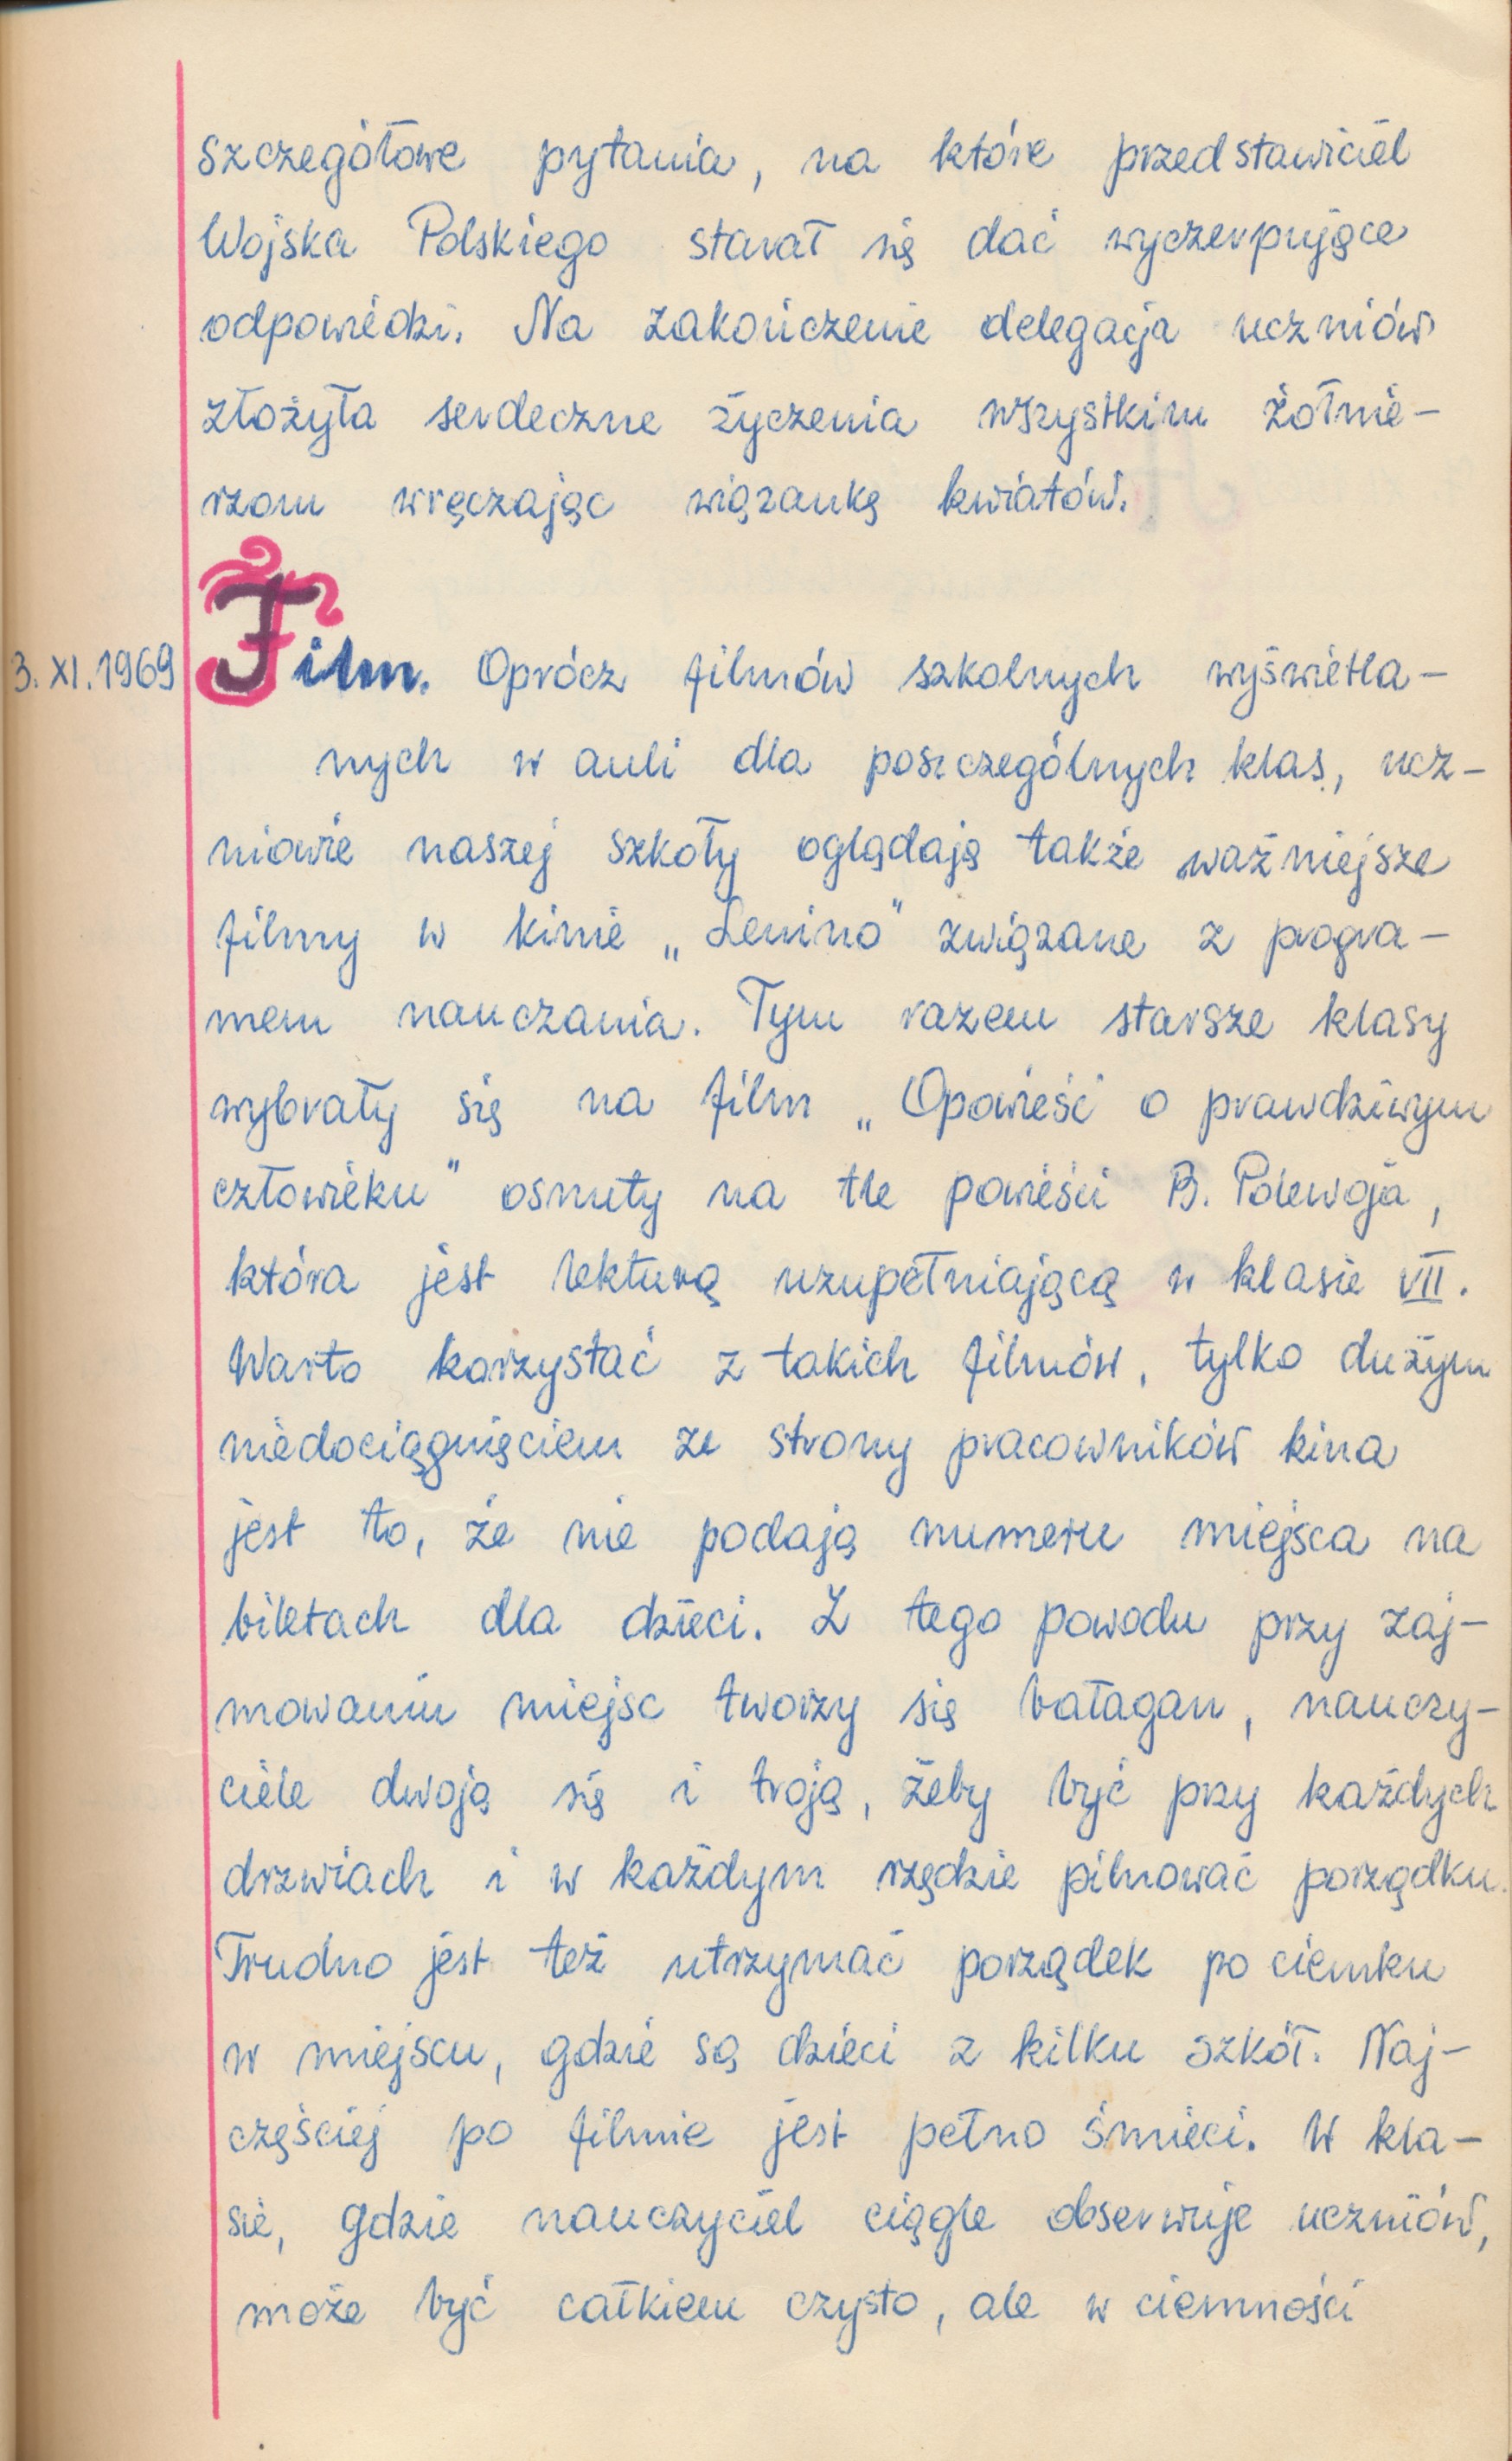 szczegółowe pytania, na które przedstawiciel
Wojska Polskiego starał się dać wyczerpujące
odpowiedzi. Na zakończenie delegacja uczniów
złożyła serdeczne życzenia wszystkim żołnie-
rzom wręczając wiązankę kwiatów.
3. XI. 1969 Film. Oprócz filmów szkolnych wyświetla-
nych w auli dla poszczególnych klas, ucz-
niowie naszej szkoły oglądają także ważniejsze
filmy w kinie „Lenino" związane z progra-
mem nauczania. Tym razem starsze klasy
wybrały się na film „Opowieść o prawdziwym
człowieku" osnuty na tle powieści B. Polewoja,
która jest lekturą uzupełniającą w klasie VII.
Warto korzystać z takich filmów, tylko dużym
niedociągnięciem ze strony pracowników kina
jest to, że nie podają numeru miejsca na
biletach dla dzieci. Z tego powodu przy zaj-
mowaniu miejsc tworzy się bałagan, nauczy-
ciele dwoją się i troją, żeby być przy każdych
drzwiach i w każdym rzędzie pilnować porządku.
Trudno jest też utrzymać porządek po ciemku
w miejscu, gdzie są dzieci z kilku szkół. Naj-
częściej po filmie jest pełno śmieci. W kla-
sie, gdzie nauczyciel ciągle obserwuje uczniów,
może być całkiem czysto, ale w ciemności